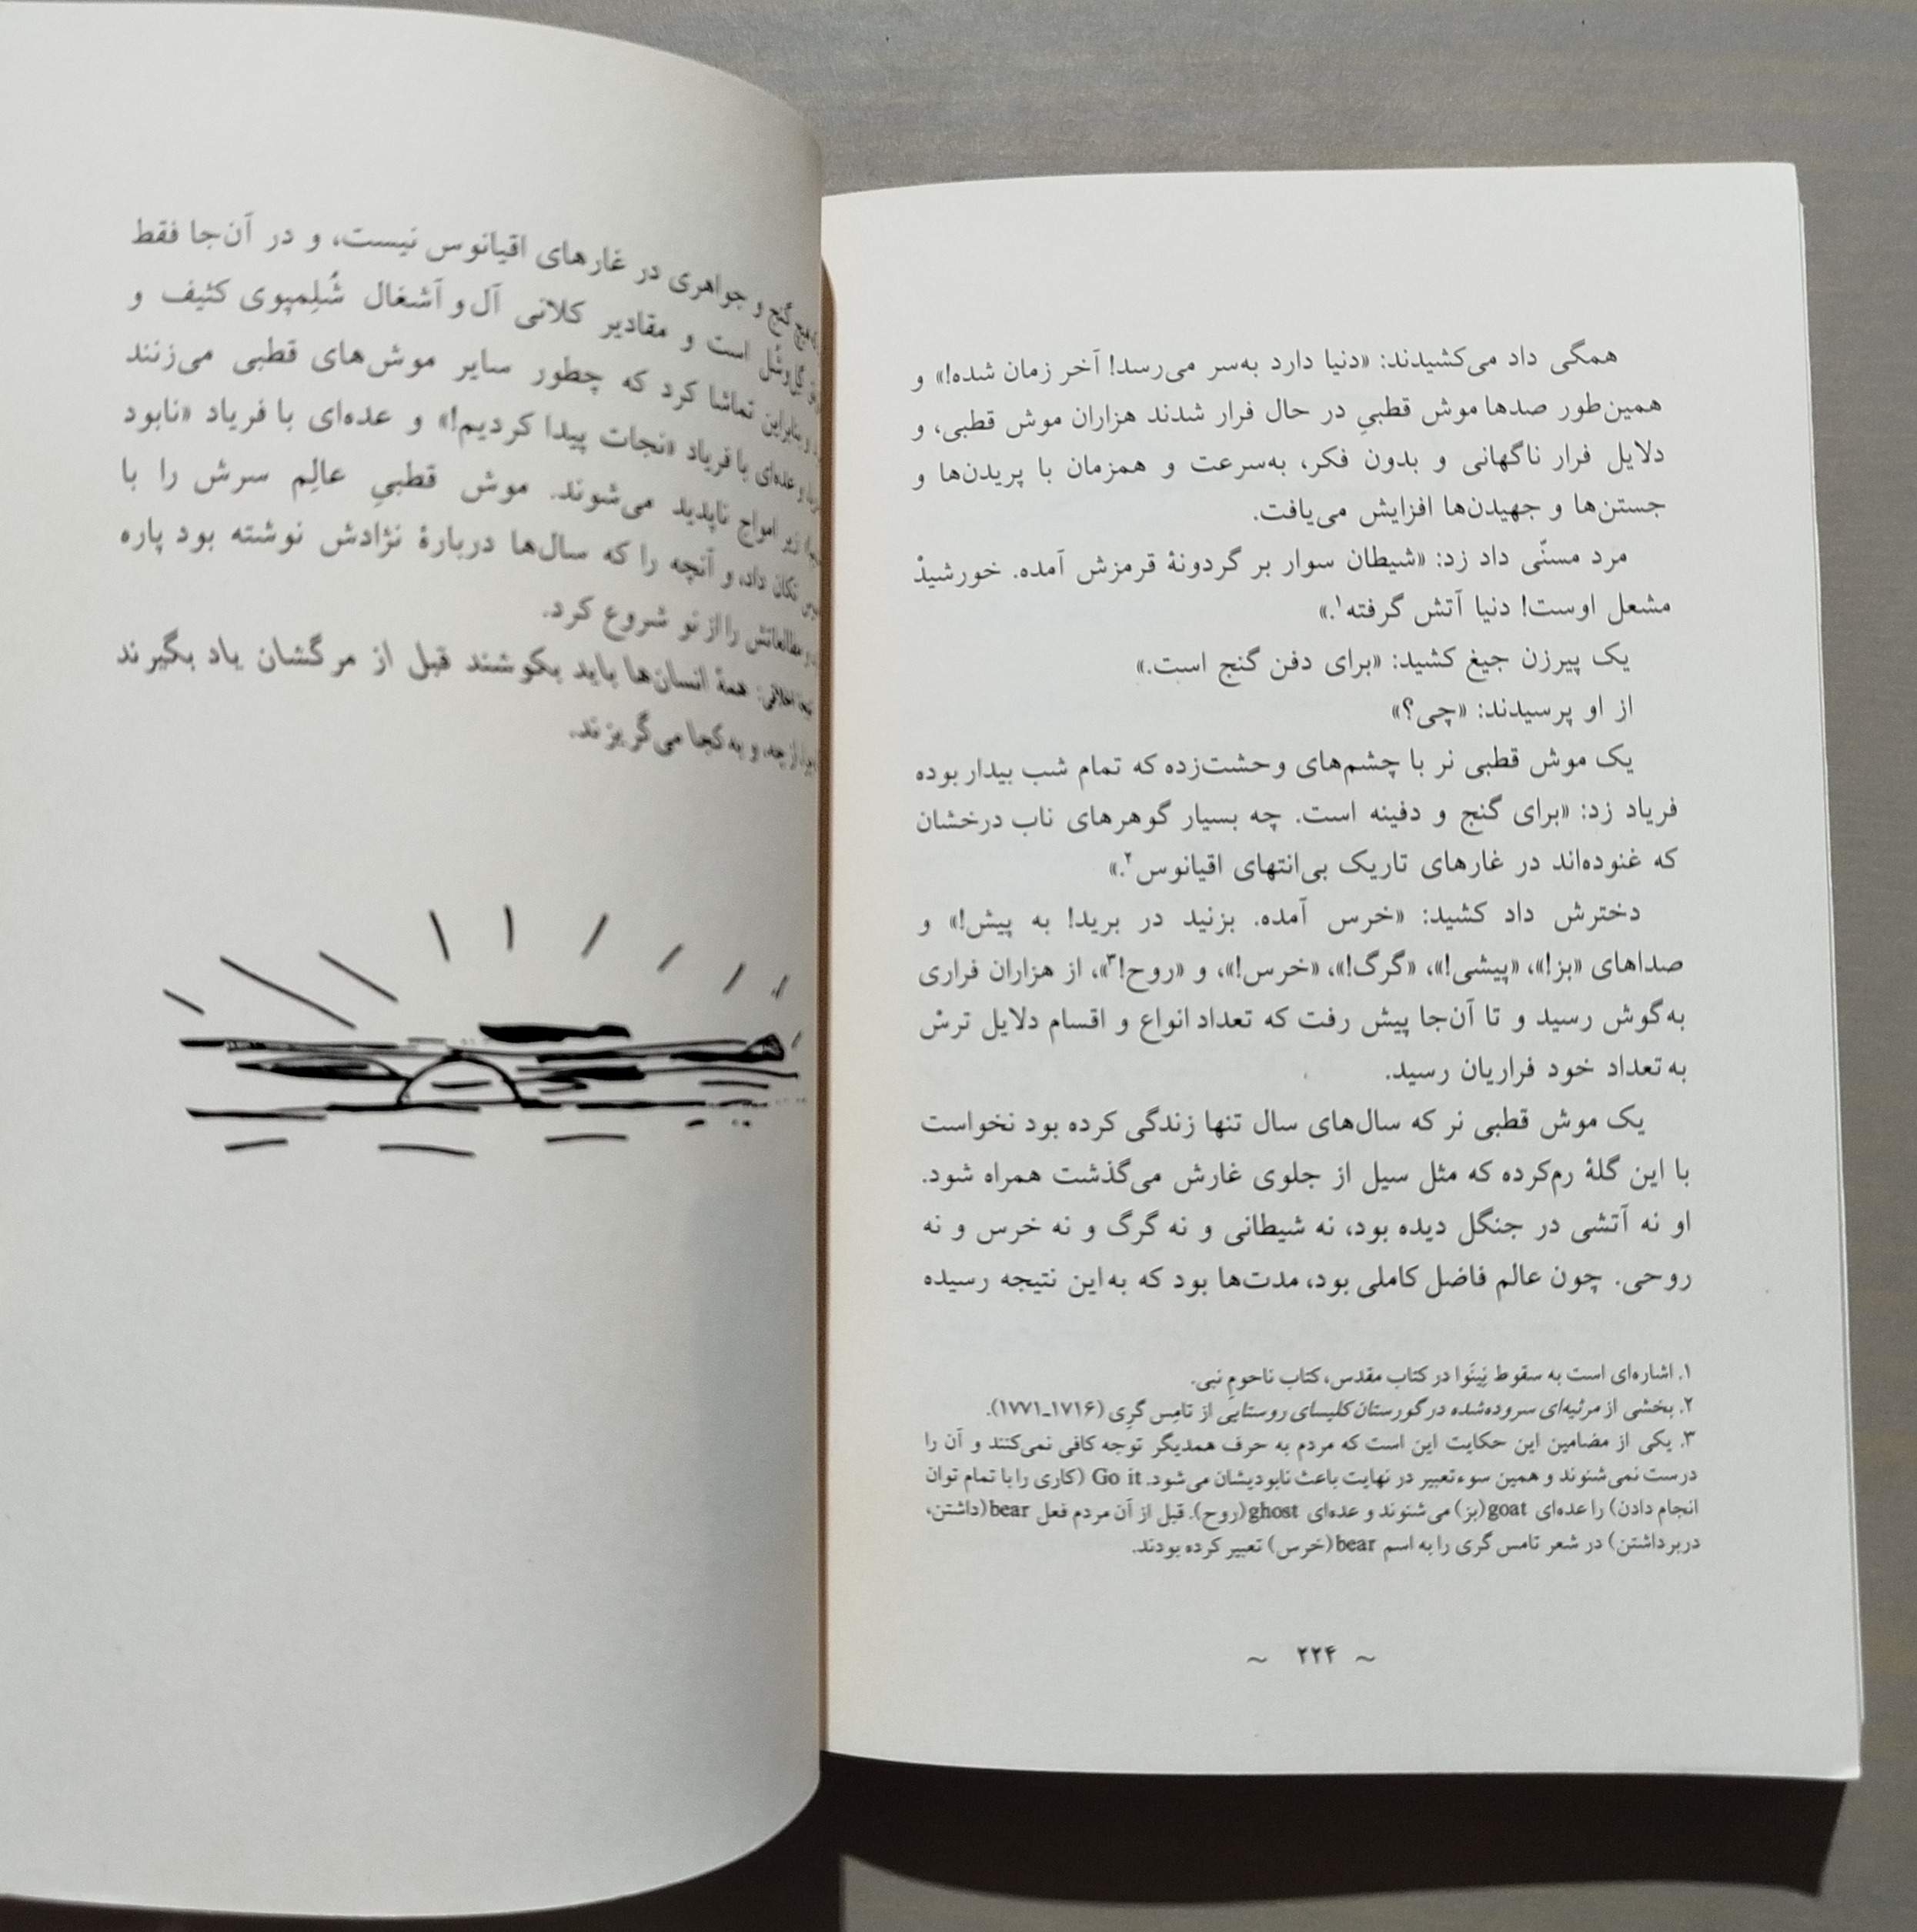 همگی داد می‌کشیدند: «دنیا دارد به‌سر می‌رسد! آخر زمان شده!» و
همین‌طور صدها موش قطبیِ در حال فرار شدند هزاران موش قطبی، و
دلایل فرار ناگهانی و بدون فکر، به‌سرعت و همزمان با پریدن‌ها و
جستن‌ها و جهیدن‌ها افزایش می‌یافت.
مرد مسنّی داد زد: «شیطان سوار بر گردونهٔ قرمزش آمده. خورشیدْ
مشعل اوست! دنیا آتش گرفته۱.»
یک پیرزن جیغ کشید: «برای دفن گنج است.»
از او پرسیدند: «چی؟»
یک موش قطبی نر با چشم‌های وحشت‌زده که تمام شب بیدار بوده
فریاد زد: «برای گنج و دفینه است. چه بسیار گوهرهای ناب درخشان
که غنوده‌اند در غارهای تاریک بی‌انتهای اقیانوس۲.»
دخترش داد کشید: «خرس آمده. بزنید در برید! به پیش!» و
صداهای «بز!»، «پیشی!»، «گرگ!»، «خرس!»، و «روح!۳»، از هزاران فراری
به‌گوش رسید و تا آن‌جا پیش رفت که تعداد انواع و اقسام دلایل ترسْ
به تعداد خود فراریان رسید.
یک موش قطبی نر که سال‌های سال تنها زندگی کرده بود نخواست
با این گلهٔ رم‌کرده که مثل سیل از جلوی غارش می‌گذشت همراه شود.
او نه آتشی در جنگل دیده بود، نه شیطانی و نه گرگ و نه خرس و نه
روحی. چون عالم فاضل کاملی بود، مدت‌ها بود که به‌این نتیجه رسیده
۱. اشاره‌ای است به سقوط نِینَوا در کتاب مقدس، کتاب ناحومِ نبی.
۲. بخشی از مرثیه‌ای سروده‌شده در گورستان کلیسای روستایی از تامِس گرِی (۱۷۱۶ـ۱۷۷۱).
۳. یکی از مضامین این حکایت این است که مردم به حرف همدیگر توجه کافی نمی‌کنند و آن را
درست نمی‌شنوند و همین سوءتعبیر در نهایت باعث نابودیشان می‌شود. Go it (کاری را با تمام توان
انجام دادن) را عده‌ای goat (بز) می‌شنوند و عده‌ای ghost (روح). قبل از آن مردم فعل bear (داشتن،
دربرداشتن) در شعر تامس گری را به اسم bear (خرس) تعبیر کرده بودند.
~ ۲۲۴ ~
هیچ گنج و جواهری در غارهای اقیانوس نیست، و در آن‌جا فقط
گل‌وشُل است و مقادیر کلانی آل و آشغال شُلِمبوی کثیف و
و بنابراین تماشا کرد که چطور سایر موش‌های قطبی می‌زنند
و عده‌ای با فریاد «نجات پیدا کردیم!» و عده‌ای با فریاد «نابود
زیر امواج ناپدید می‌شوند. موش قطبیِ عالِم سرش را با
تکان داد، و آنچه را که سال‌ها دربارهٔ نژادش نوشته بود پاره
و مطالعاتش را از نو شروع کرد.
اخلاقی: همهٔ انسان‌ها باید بکوشند قبل از مرگشان یاد بگیرند
از چه، و به‌کجا می‌گریزند.